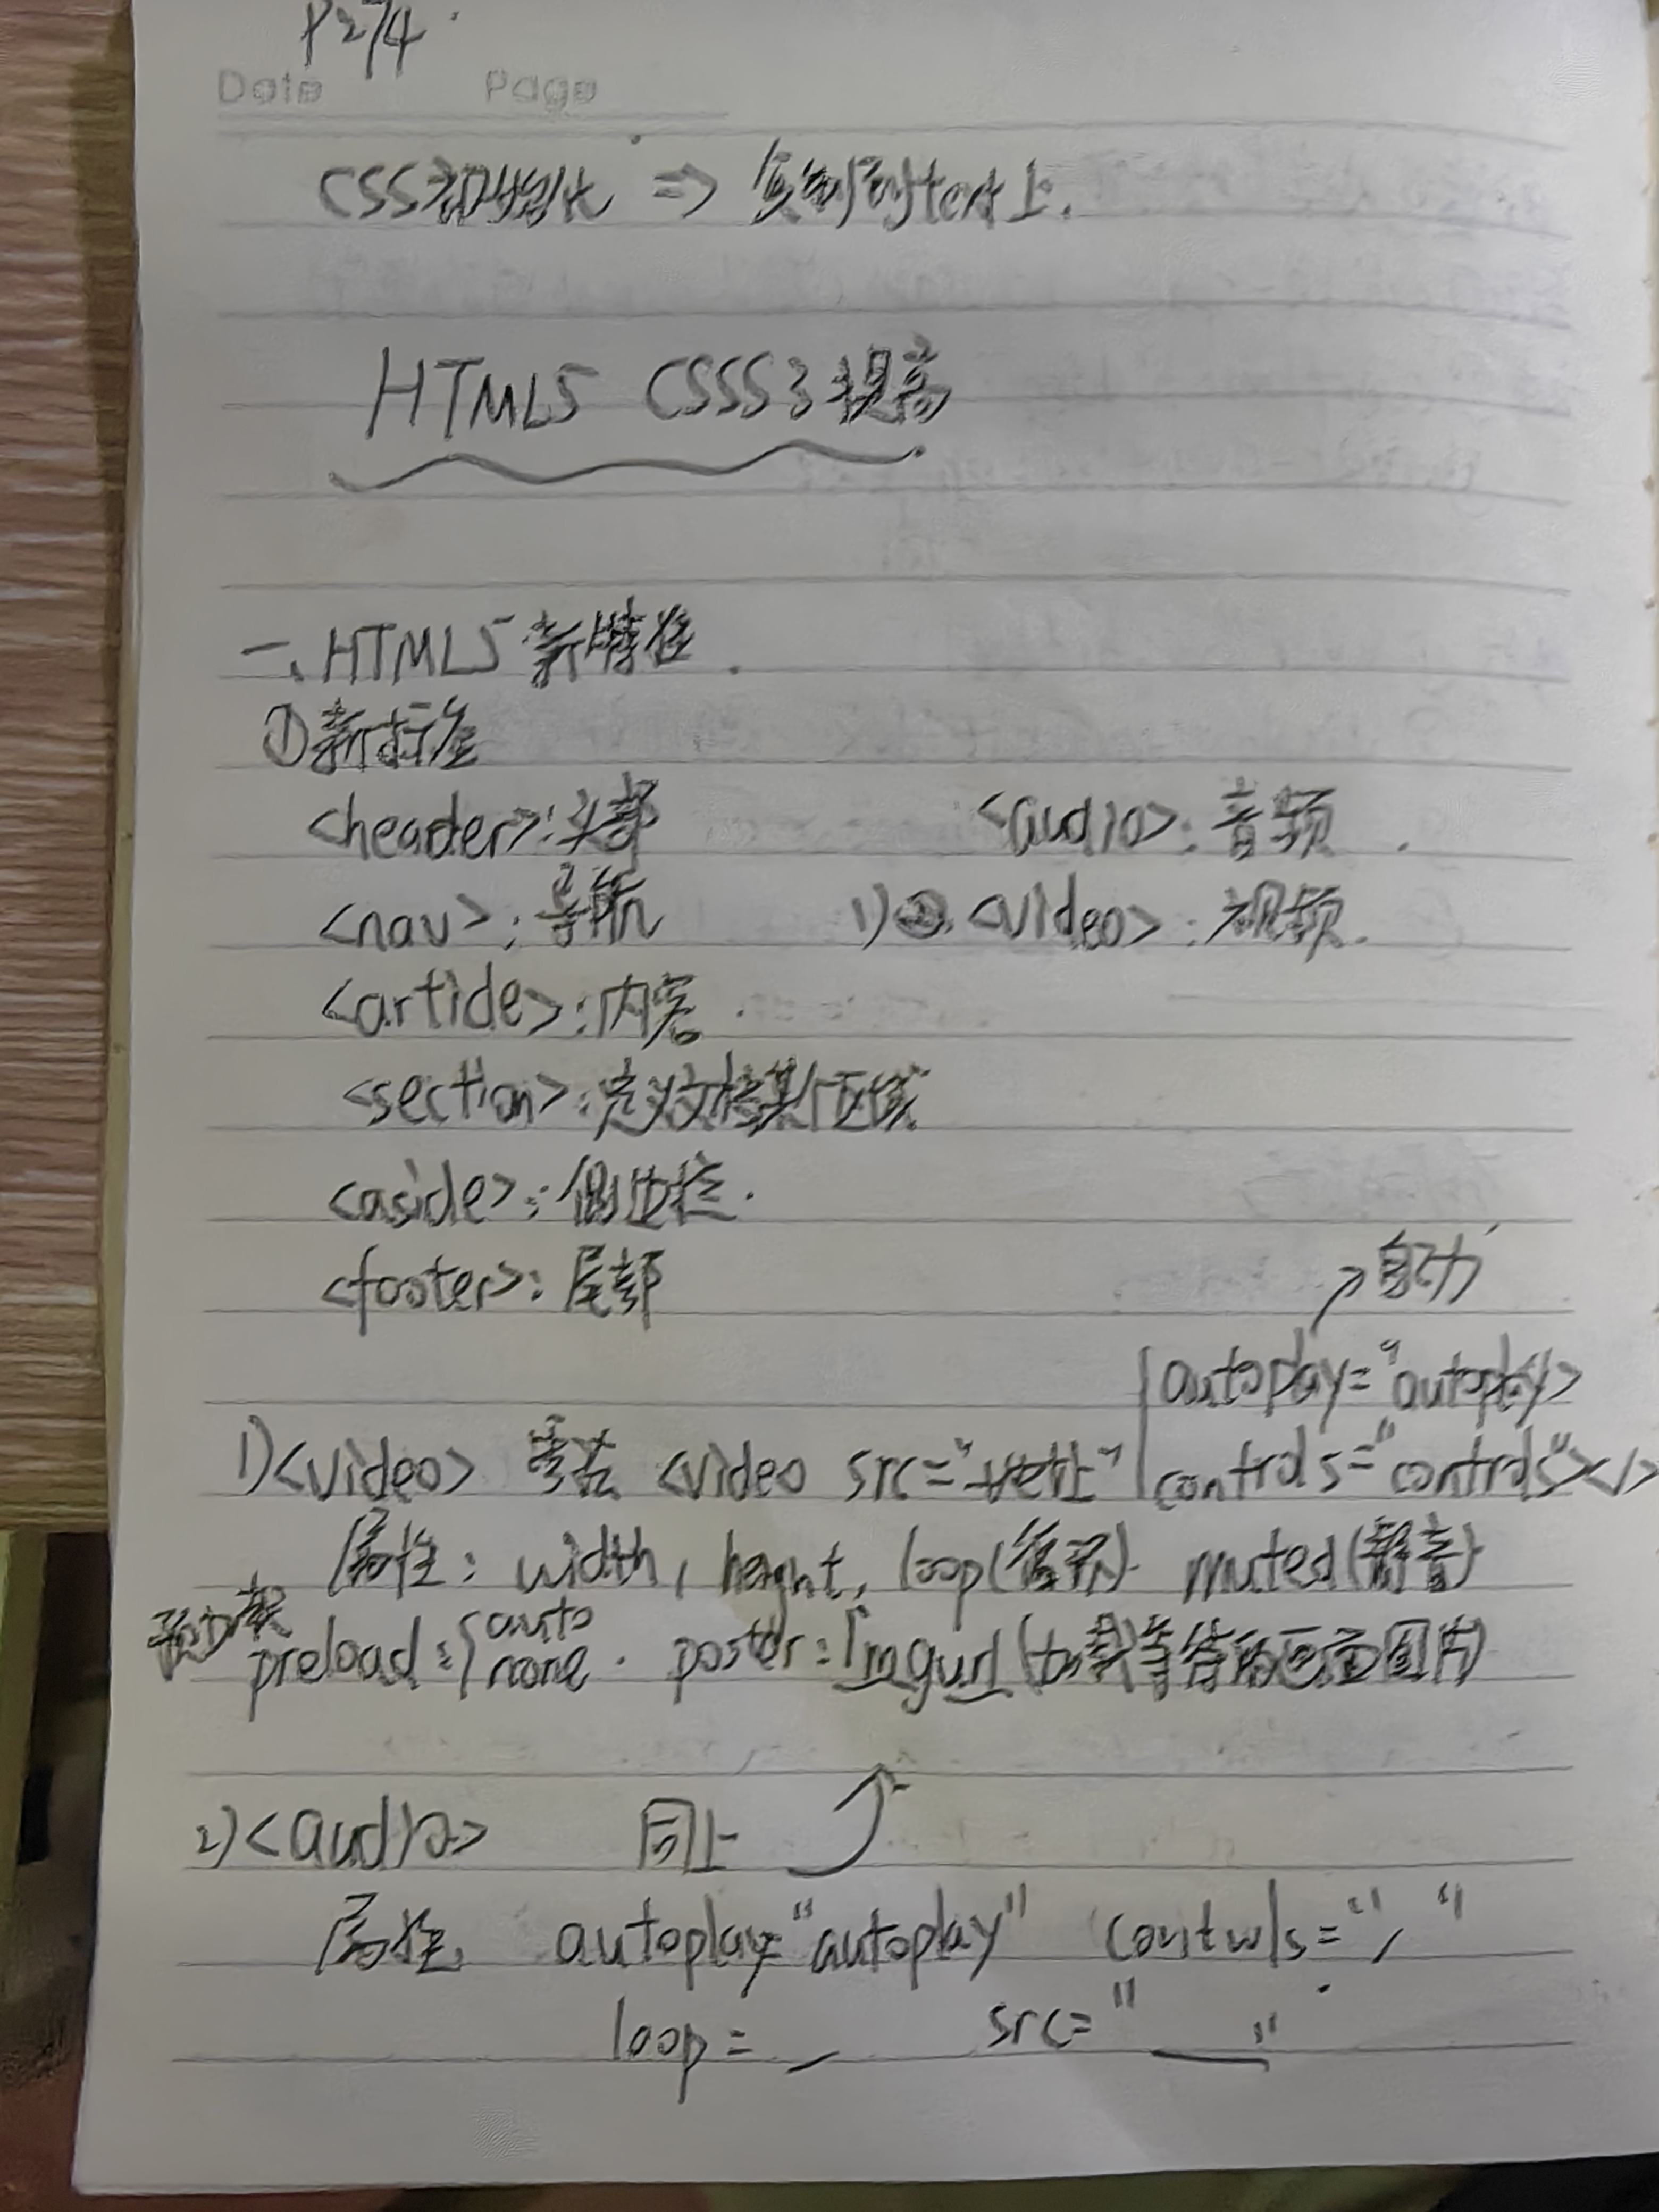 P274
Date Page
CSS初始化 => 复制到text上.
HTML5 CSSS3提高
一、HTML5 新特性.
①新标签
<header>:头部 <audio>:音频.
<nav>:导航 1)②.<video>:视频.
<artide>:内容.
<section>:定义文档某个区域
<aside>:侧边栏.
<footer>:尾部
自动
autoplay="autoplay>
1)<video> 语法 <video src="地址" controls="controls"></>
属性: width, height, loop(循环) muted(静音)
预加载 preload:{auto none. poster:Imgurl(加载等待的画面图片)
2)<audio> 同上
属性, autoplay="autoplay" controls=" "
loop = src=" "